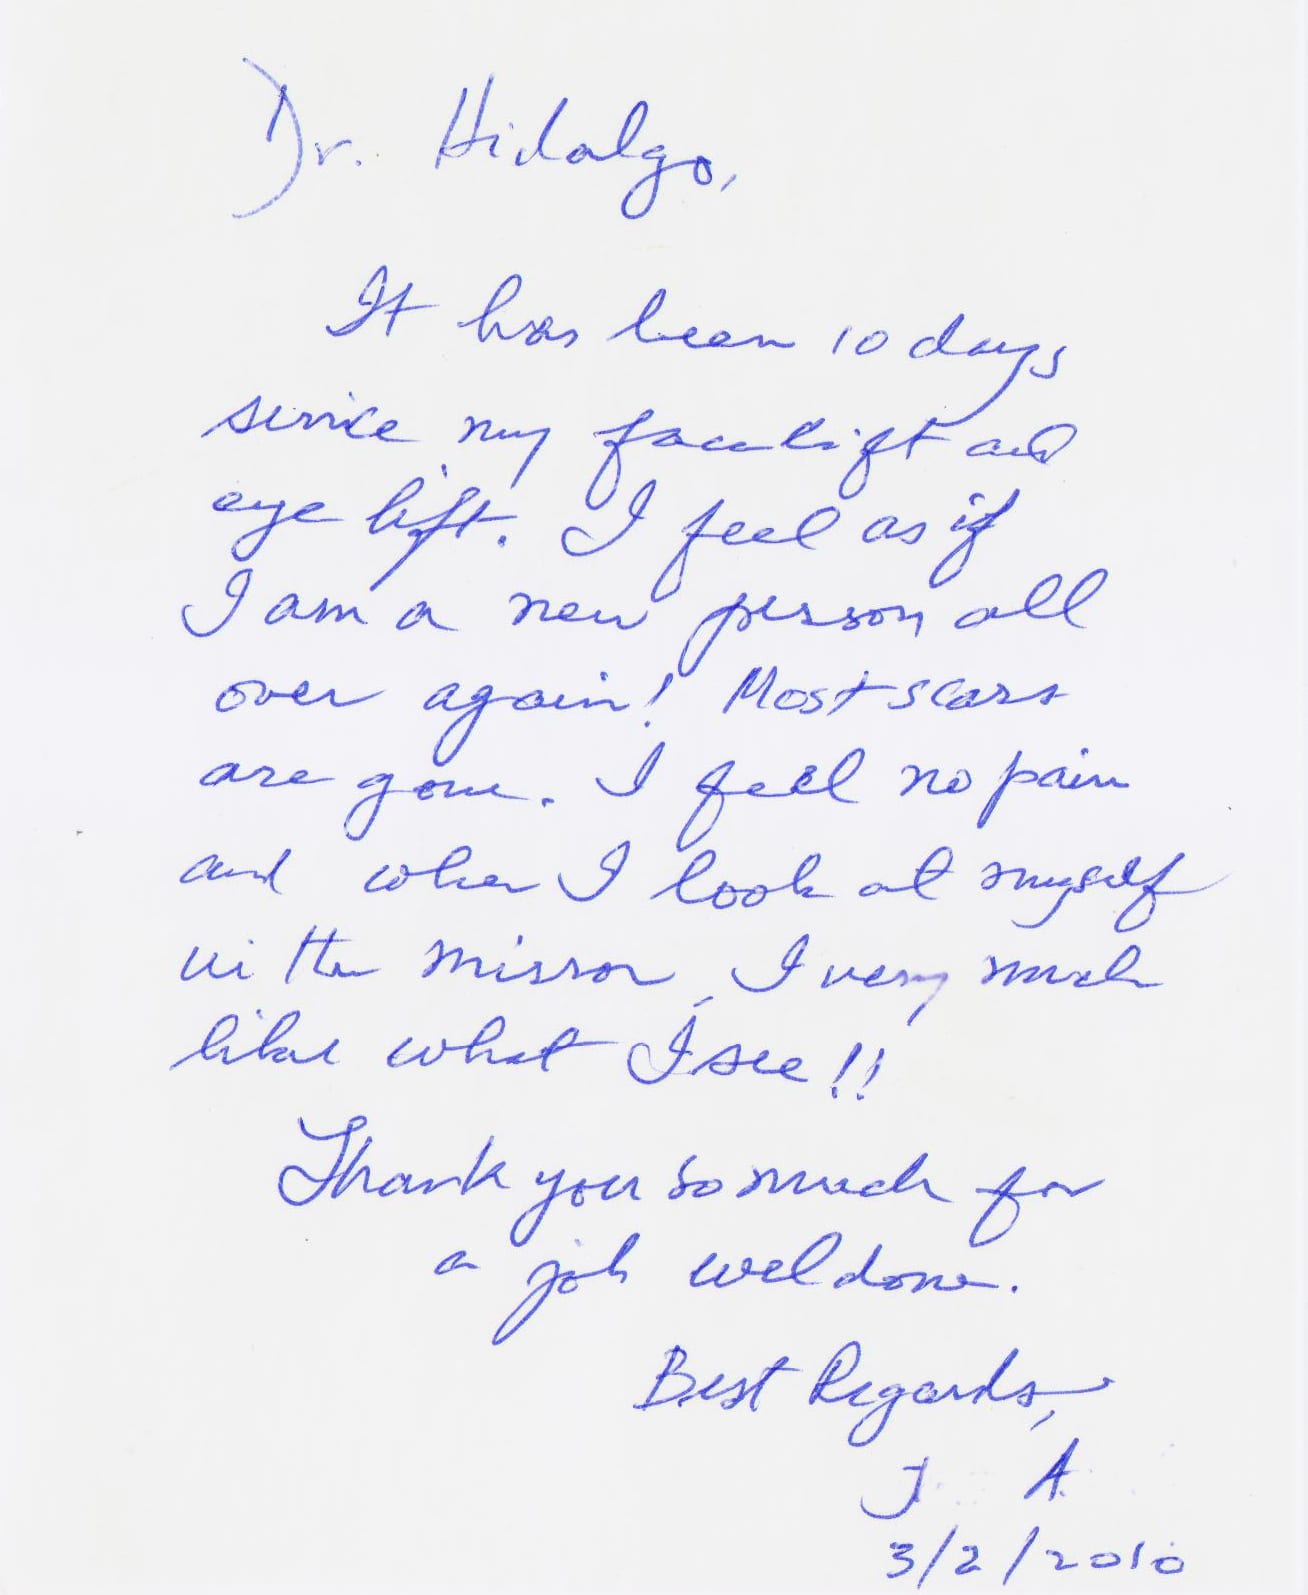 Dr. Hidalgo,
It has been 10 days
since my facelift and
eye lift. I feel as if
I am a new person all
over again! Most scars
are gone. I feel no pain
and when I look at myself
in the mirror, I very much
like what I see!!
Thank you so much for
a job well done.
Best Regards,
J. A.
3/2/2010